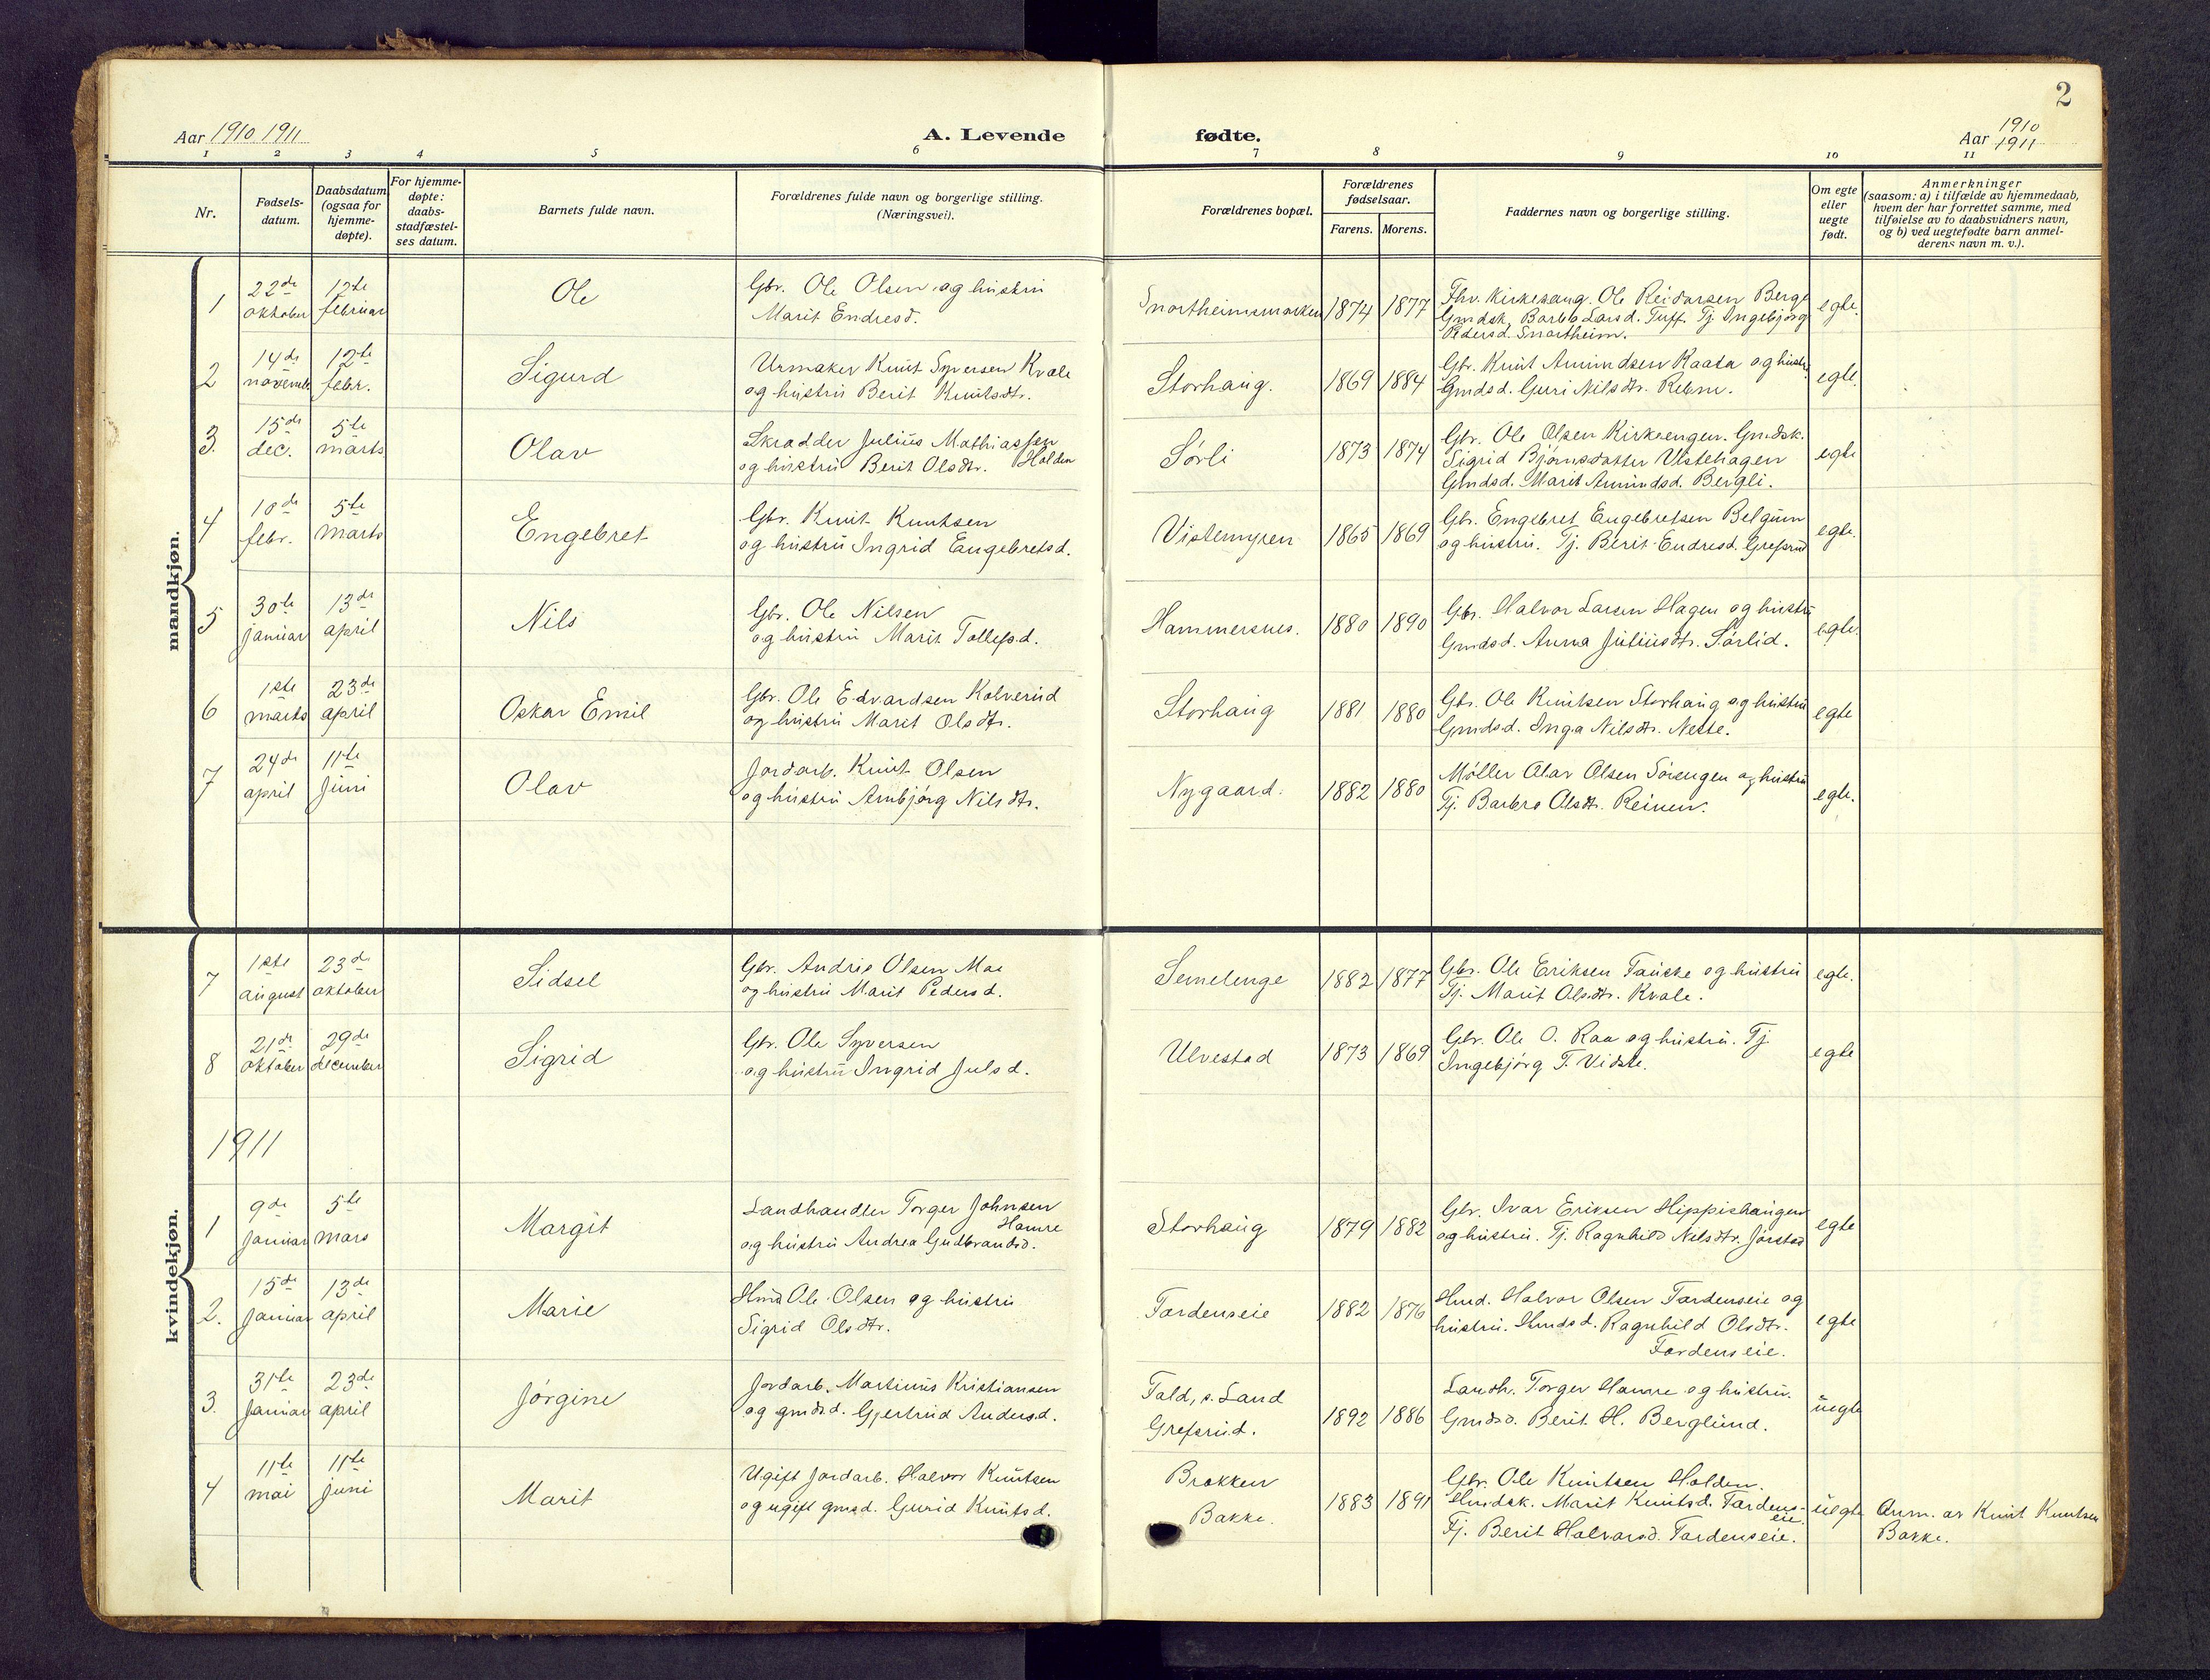 2
Aar 1910 1911
A. Levende
fødte.
1910
Aar 1911
1 2 3 4 5 6 7 8 9 10 11
Nr.
Fødsels-
datum.
Daabsdatum
(ogsaa for
hjemme-
døpte).
For hjemme-
døpte:
daabs-
stadfæstel-
ses datum.
Barnets fulde navn.
Forældrenes fulde navn og borgerlige stilling.
(Næringsvei).
Forældrenes bopæl.
Forældrenes
fødselsaar.
Farens. Morens.
Faddernes navn og borgerlige stilling.
Om egte
eller
uegte
født.
Anmerkninger
(saasom: a) i tilfælde av hjemmedaab,
hvem der har forrettet samme, med
tilføielse av to daabsvidners navn,
og b) ved uegtefødte barn anmel-
derens navn m. v.).
mandkjøn.
1
22de
oktober
12te
februar
Ole
Gbr. Ole Olsen og hustru
Marit Endresd.
Snortheimsmarken 1874 1877
Fhv. Kirkesang. Ole Reidarsen Berge
Gmdsk. Barbro Larsd. Tuff. Tj. Ingebjørg
Pedersd. Snortheim.
egte.
2
14de
novembr
12te
febr.
Sigurd
Urmaker Knut Syversen Kvale
og hustru Berit Knutsdtr.
Storhaug. 1869 1884
Gbr. Knut Amundsen Raata og hustru
Gmdsd. Guri Nilsdtr. Rebne.
egte.
3.
15de
dec.
5te
marts
Olav
Skrædder Julius Mathiassen
Holden
og hustru Berit Olsdtr.
Sørli 1873 1874
Gbr. Ole Olsen Kirkeengen. Gmdsk.
Sigrid Bjørnsdatter Vistehagen
Gmdsd. Marit Amundsd. Bergli.
egte
4
10de
febr.
5te
marts
Engebret
Gbr. Knut Knutsen
og hustru Ingrid Engebretsd.
Vistemyren 1865 1869
Gbr. Engebret Engebretsen Belgum
og hustru. Tj. Berit Endresd. Grefsrud
egte.
5
30te
januar
13de
april
Nils
Gbr. Ole Nilsen
og hustru Marit Tollefsd.
Hammersnes. 1880 1890
Gbr. Halvor Larsen Hagen og hustru
Gmdsd. Anna Juliusdtr. Sørlid.
egte.
6
1ste
marts
23de
april
Oskar Emil
Gbr. Ole Edvardsen Kalverud
og hustru Marit Olsdtr.
Storhaug 1881 1880
Gbr. Ole Knutsen Storhaug og hustru
Gmdsd. Inga Nilsdtr. Neste.
egte
7
24de
april
11te
Juni
Olav
Jordarb. Knut Olsen
og hustru Arnbjørg Nilsdtr.
Nygaard. 1882 1880
Møller Olav Olsen Sørengen og hustru
Tj. Barbro Olsdtr. Reinen.
egte.
kvindekjøn.
7
1ste
august
23de
oktober
Sidsel
Gbr. Andris Olsen Moe
og hustru Marit Pedersd.
Semelenge 1882 1877
Gbr. Ole Eriksen Fauske og hustru
Tj. Marit Olsdtr. Kvale.
egte.
8
21de
oktober
29de
december
Sigrid
Gbr. Ole Syversen
og hustru Ingrid Julsd.
Ulvestad 1873 1869
Gbr. Ole O. Raa og hustru. Tj
Ingebjørg T. Vidste.
egte
1911
1
9de
januar
5te
mars
Margit
Landhandler Torger Johnsen
Hamre
og hustru Andrea Gudbrandsd.
Storhaug 1879 1882
Gbr. Ivar Eriksen Hippishaugen
og hustru. Tj. Ragnhild Nilsdtr. Jørstad
egte
2.
15de
Januar
13de
april
Marie
Hmd Ole Olsen og hustru
Sigrid Olsdtr.
Fordenseie 1882 1876
Hmd. Halvor Olsen Fordenseie og
hustru. Hmdsd. Ragnhild Olsdtr.
Fordenseie.
egte
3.
31te
Januar
23de
april
Jørgine
Jordarb. Martinus Kristiansen
og gmdsd. Gjertrud Andersd.
Fald, s. Land
Grefsrud.
1892 1886
Landh. Torger Hamre og hustru.
Gmdsd. Berit H. Berglund.
uegte
4
11te
mai
11te
juni
Marit
Ugift Jordarb. Halvor Knutsen
og ugift gmsd. Gurid Knutsd.
Brokken
Bakke.
1883 1891
Gbr. Ole Knutsen Holden.
Hmdsk. Marit Knutsd. Fordens-
eie.
Tj. Berit Halvorsd. Fordenseie.
uegte
Anm. av Knut Knutsen
Bakke.